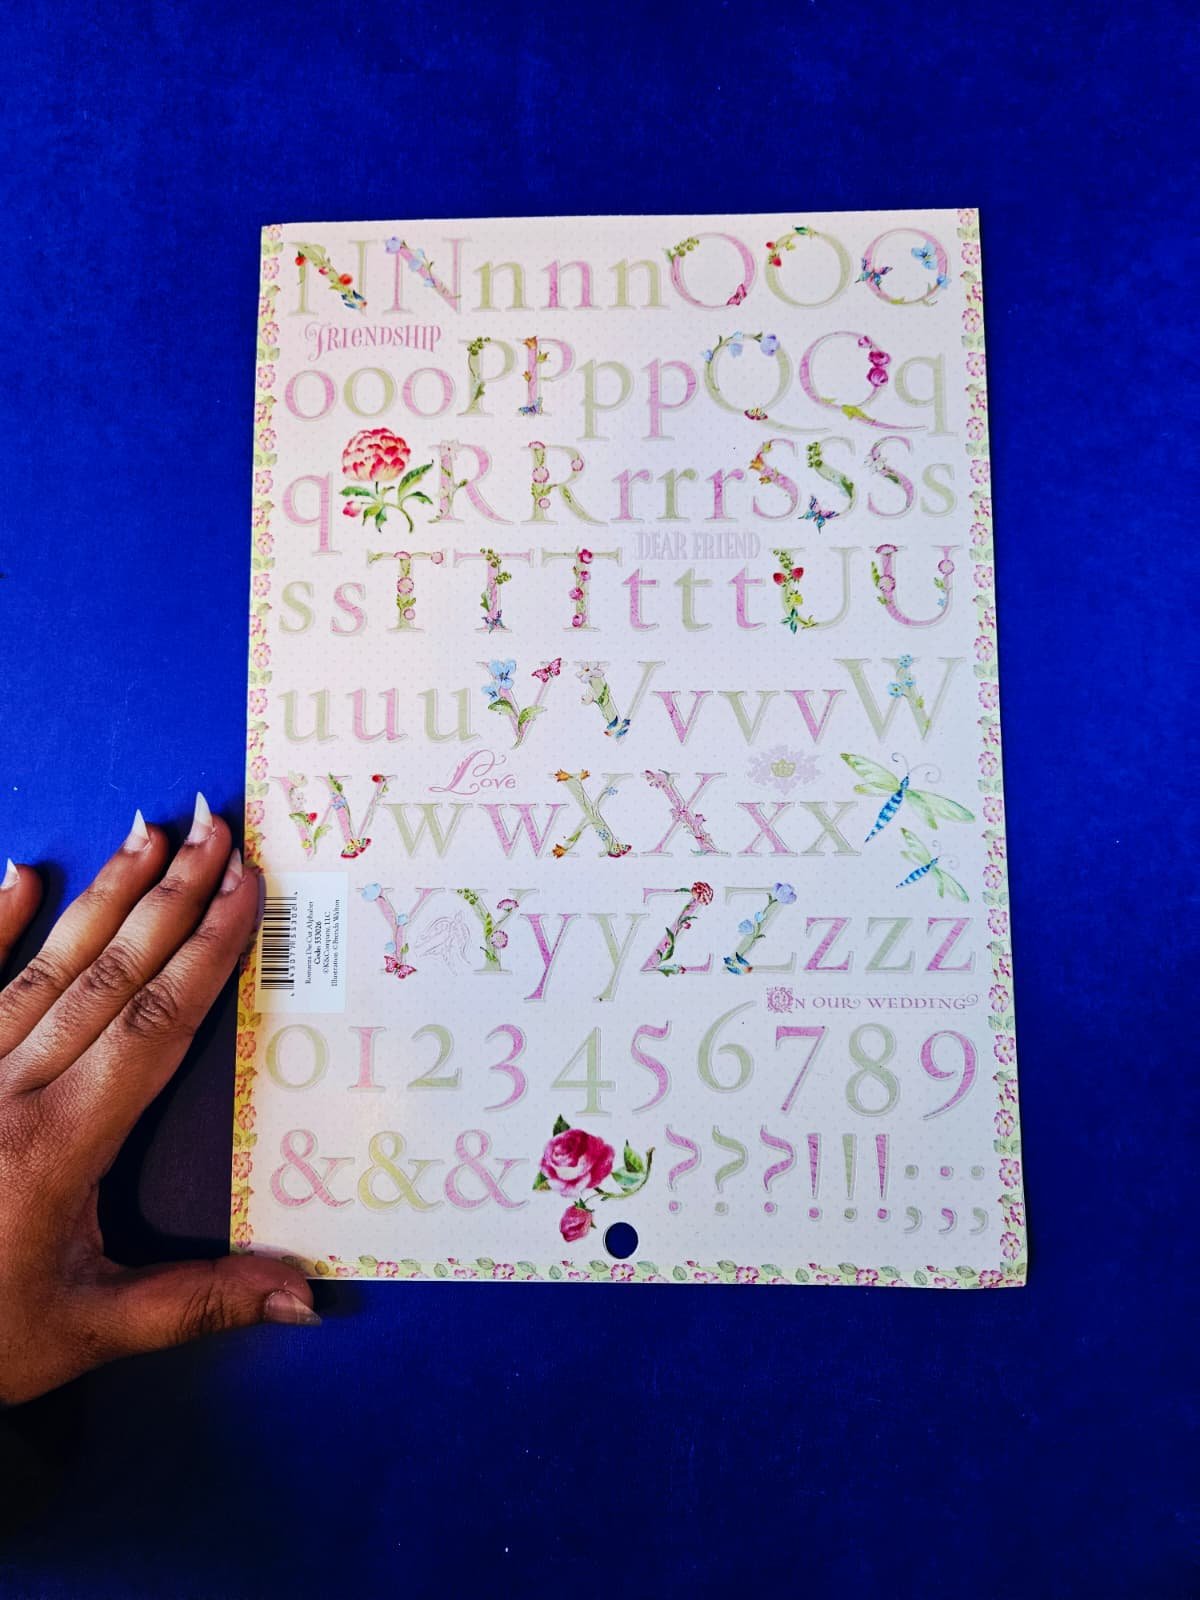 NNnnnnOOO
FRIENDSHIP
oooPPppQQq
qRRrrrSSSs
DEAR FRIEND
ssTTTtttUU
uuuVVvvvW
Love
WwwXXxx
YYyyZZzzz
Romanza Die-Cut Alphabet
Code: 553026
©K&Company, LLC
Illustration ©Brenda Walton
ON OUR WEDDING
0123456789
&&&???!!!...
,,,